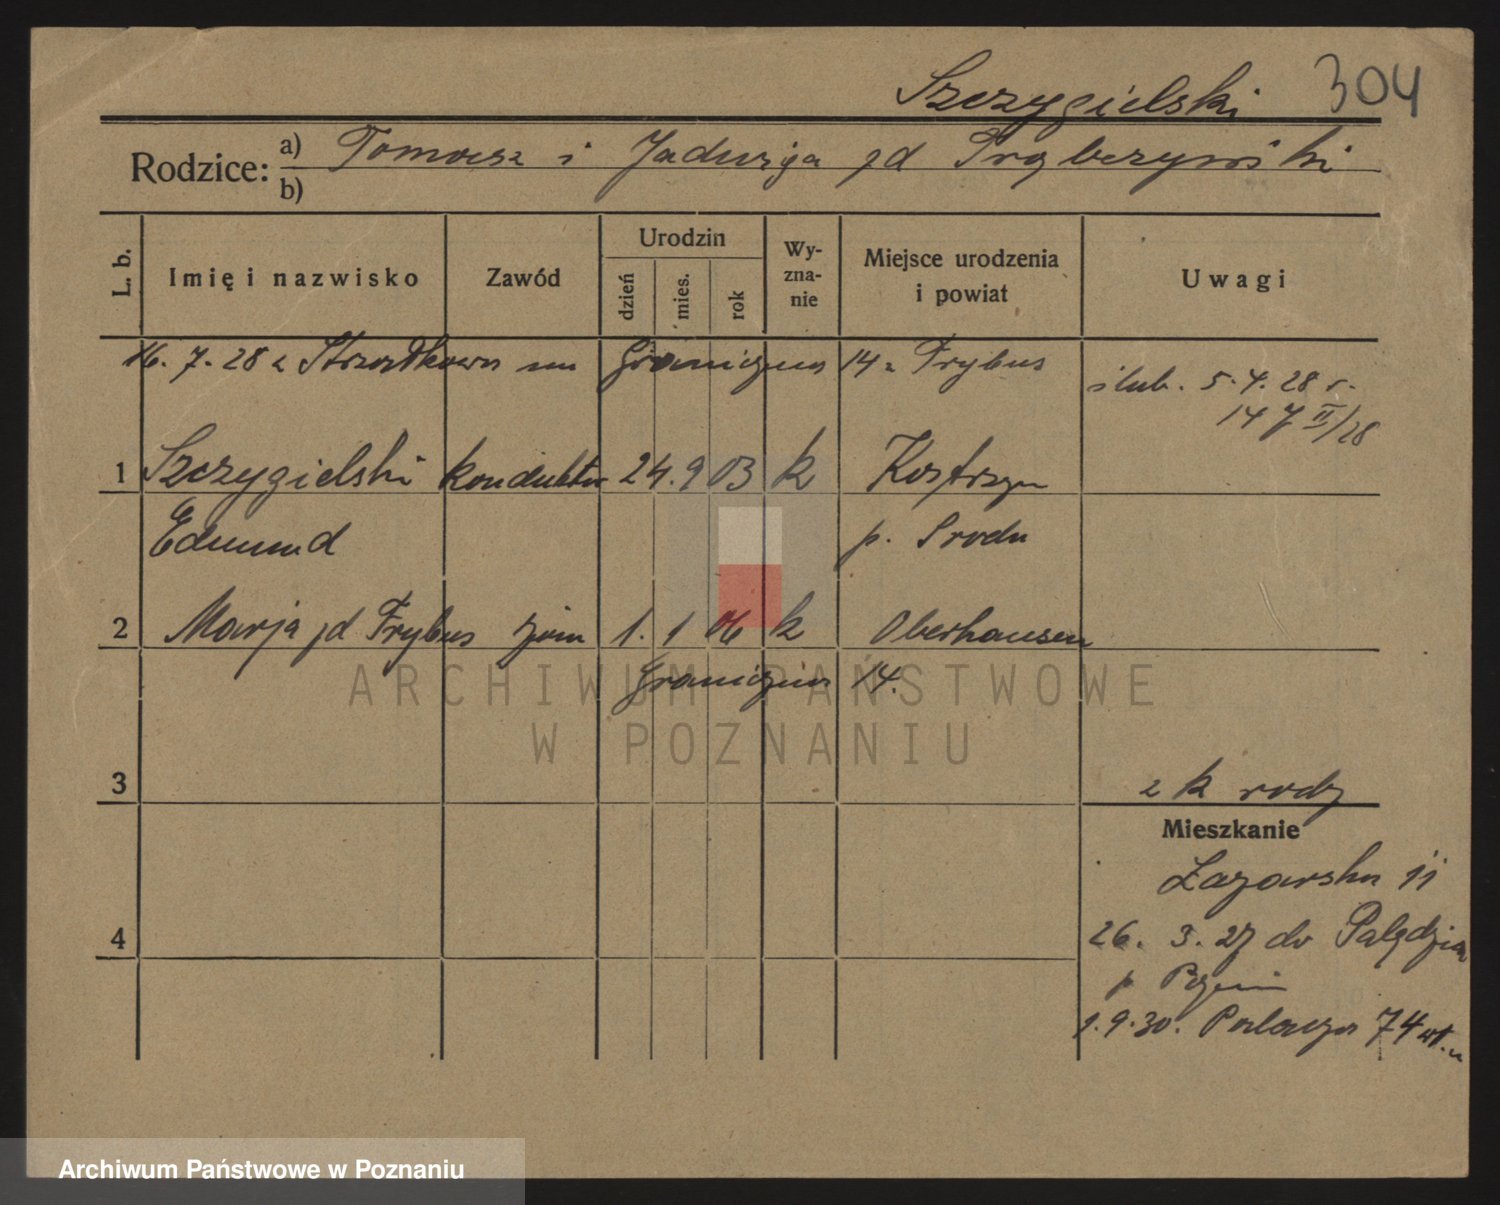 Szczygielski 304
Rodzice: a) Tomasz i Jadwiga zd
b)
L. b. Imię i nazwisko Zawód Urodzin dzień mies. rok Wy-zna-nie Miejsce urodzenia i powiat Uwagi
16. 7. 28 z Strzałkowa na Graniczna 14 z Frybus
ślub. 5. 4. 28 r.
147 II/28
1 Szczygielski konduktor 24. 9 03 k Kostrzyn
Edmund p. Środa
2 Marja zd Frybus żona 1. 1 06 k Oberhausen
Graniczna 14.
ARCHIWUM PAŃSTWOWE
W POZNANIU
3
z k rodz
Mieszkanie
Łazarska 11
4
26. 3. 27 do Palędzia
p
1. 9. 30. Palacza 74
Archiwum Państwowe w Poznaniu